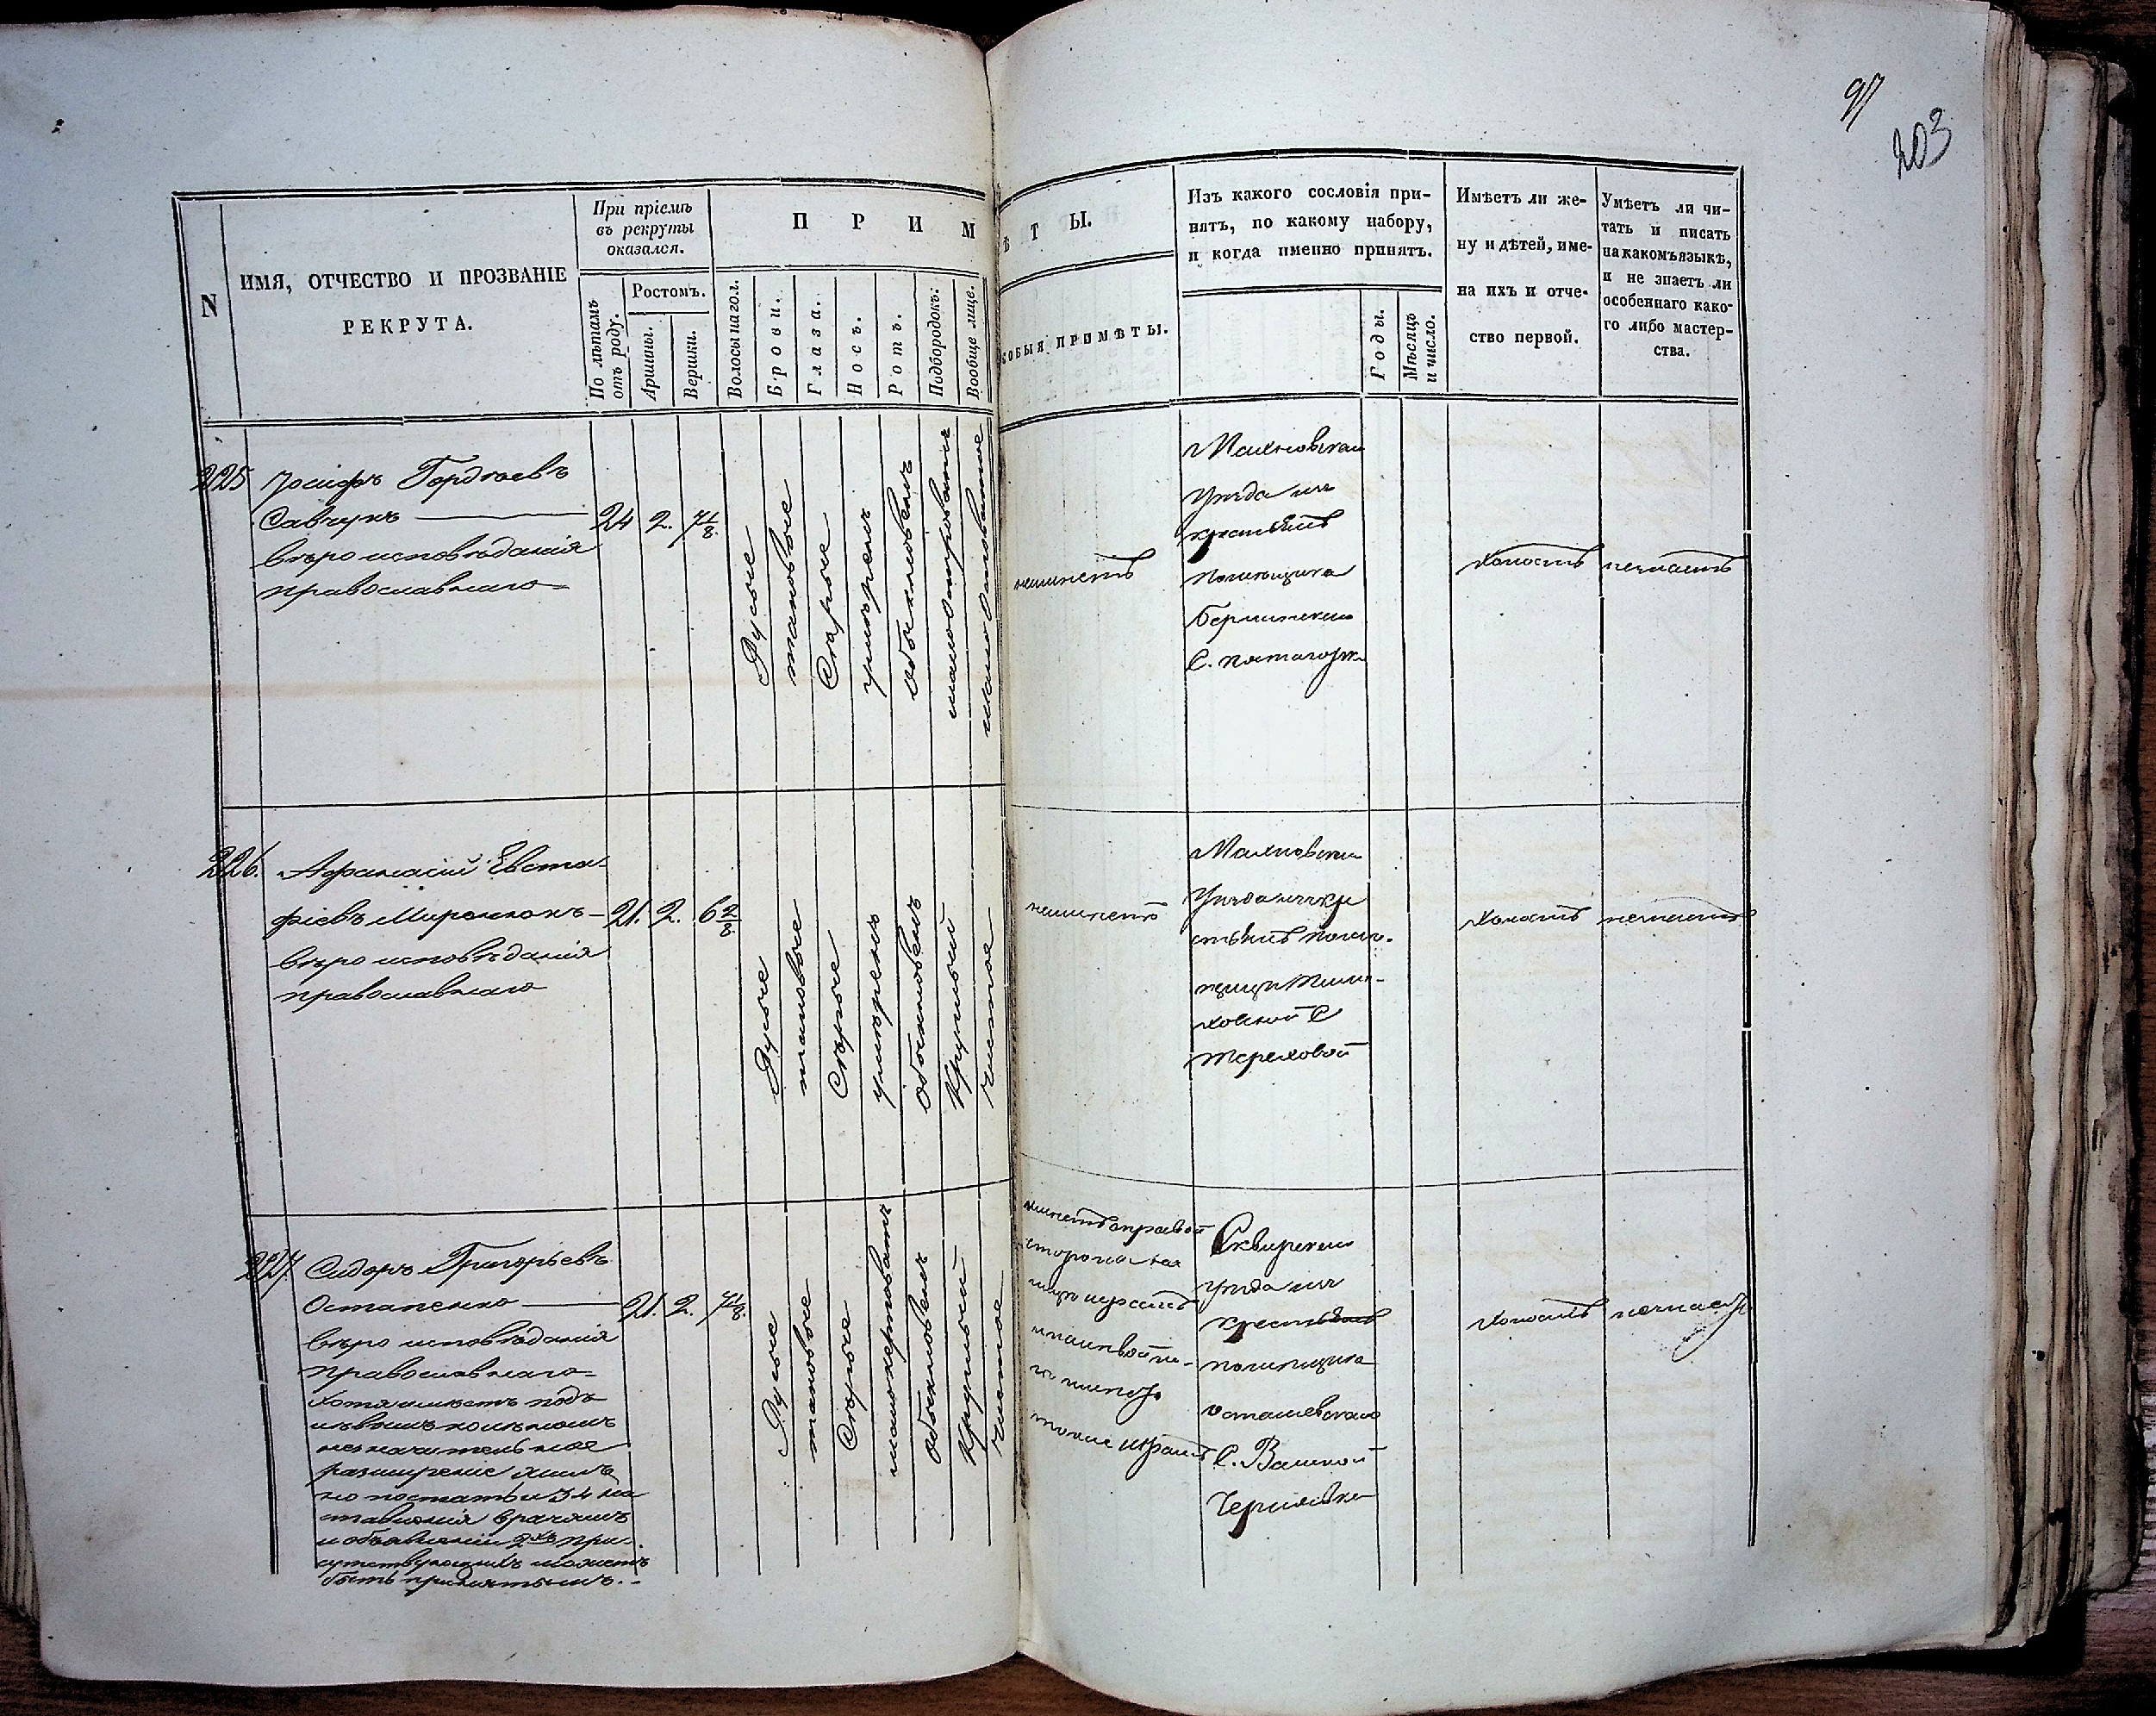 97
203
N
ИМЯ, ОТЧЕСТВО И ПРОЗВАНІЕ
РЕКРУТА.
При пріемѣ
въ рекруты
оказался.
По лѣтамъ
отъ роду.
Ростомъ.
Аршины.
Вершки.
П Р И М
Волосы на гол.
Брови.
Глаза.
Носъ.
Ротъ.
Подбородокъ.
Вообще лице.
Ѣ Т Ы.
СОБЫЯ ПРИМѢТЫ.
Изъ какого сословія при-
нятъ, по какому набору,
и когда именно принятъ.
Годы.
Мѣсяцъ
и число.
Имѣетъ ли же-
ну и дѣтей, име-
на ихъ и отче-
ство первой.
Умѣетъ ли чи-
тать и писать
на какомъ языкѣ,
и не знаетъ ли
особеннаго како-
го либо мастер-
ства.
225
Іосифъ Гордѣевъ
Савчукъ
вѣро исповѣданія
православнаго
24
2.
7 1/8
Русые
таковые
Сѣрые
умѣренъ
обыкновенъ
неимѣетъ
Махновскаго
Уѣзда изъ
крестьянъ
помѣщика
С.
холостъ
226.
Афанасій Евста-
фіевъ Миронюкъ
вѣро исповѣданія
православнаго
21.
2.
6 2/8
Русые
таковые
Сѣрые
умѣренъ
обыкновенъ
Круглый
чистое
неимѣетъ
Махновскаго
Уѣзда изъ кре
стьянъ помѣ-
щицы
ховской С
Тереховой
холостъ
227.
Сидоръ Григорьевъ
Остапенко
вѣро исповѣданія
православнаго
хотя имѣетъ подъ
лѣвымъ колѣномъ
незначительное
разширеніе жилъ
но по статьи 34 на
ставленія врачамъ
и объявленіи 2хъ при-
сутствующихъ можетъ
быть принятымъ.
21.
2.
7 1/8
Русые
таковые
Сѣрые
обыкновенъ
Круглый
чистое
имѣетъ на правой
сторонѣ
Сквирскаго
уѣзда изъ
крестьянъ
помѣщика
Осташевскаго
С.
Чернявки
холостъ